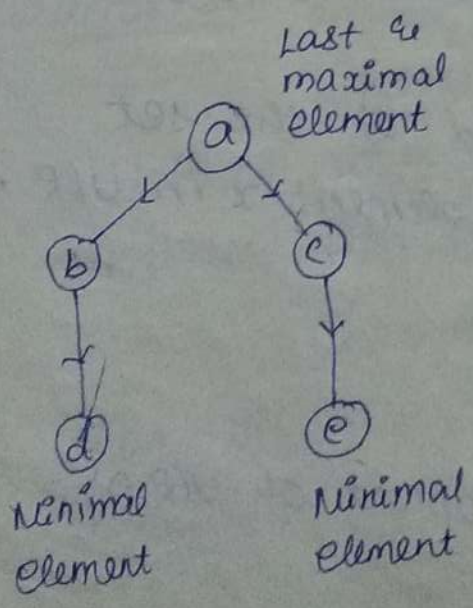 Last &
maximal
element
a
b
c
d
e
Minimal
element
Minimal
element